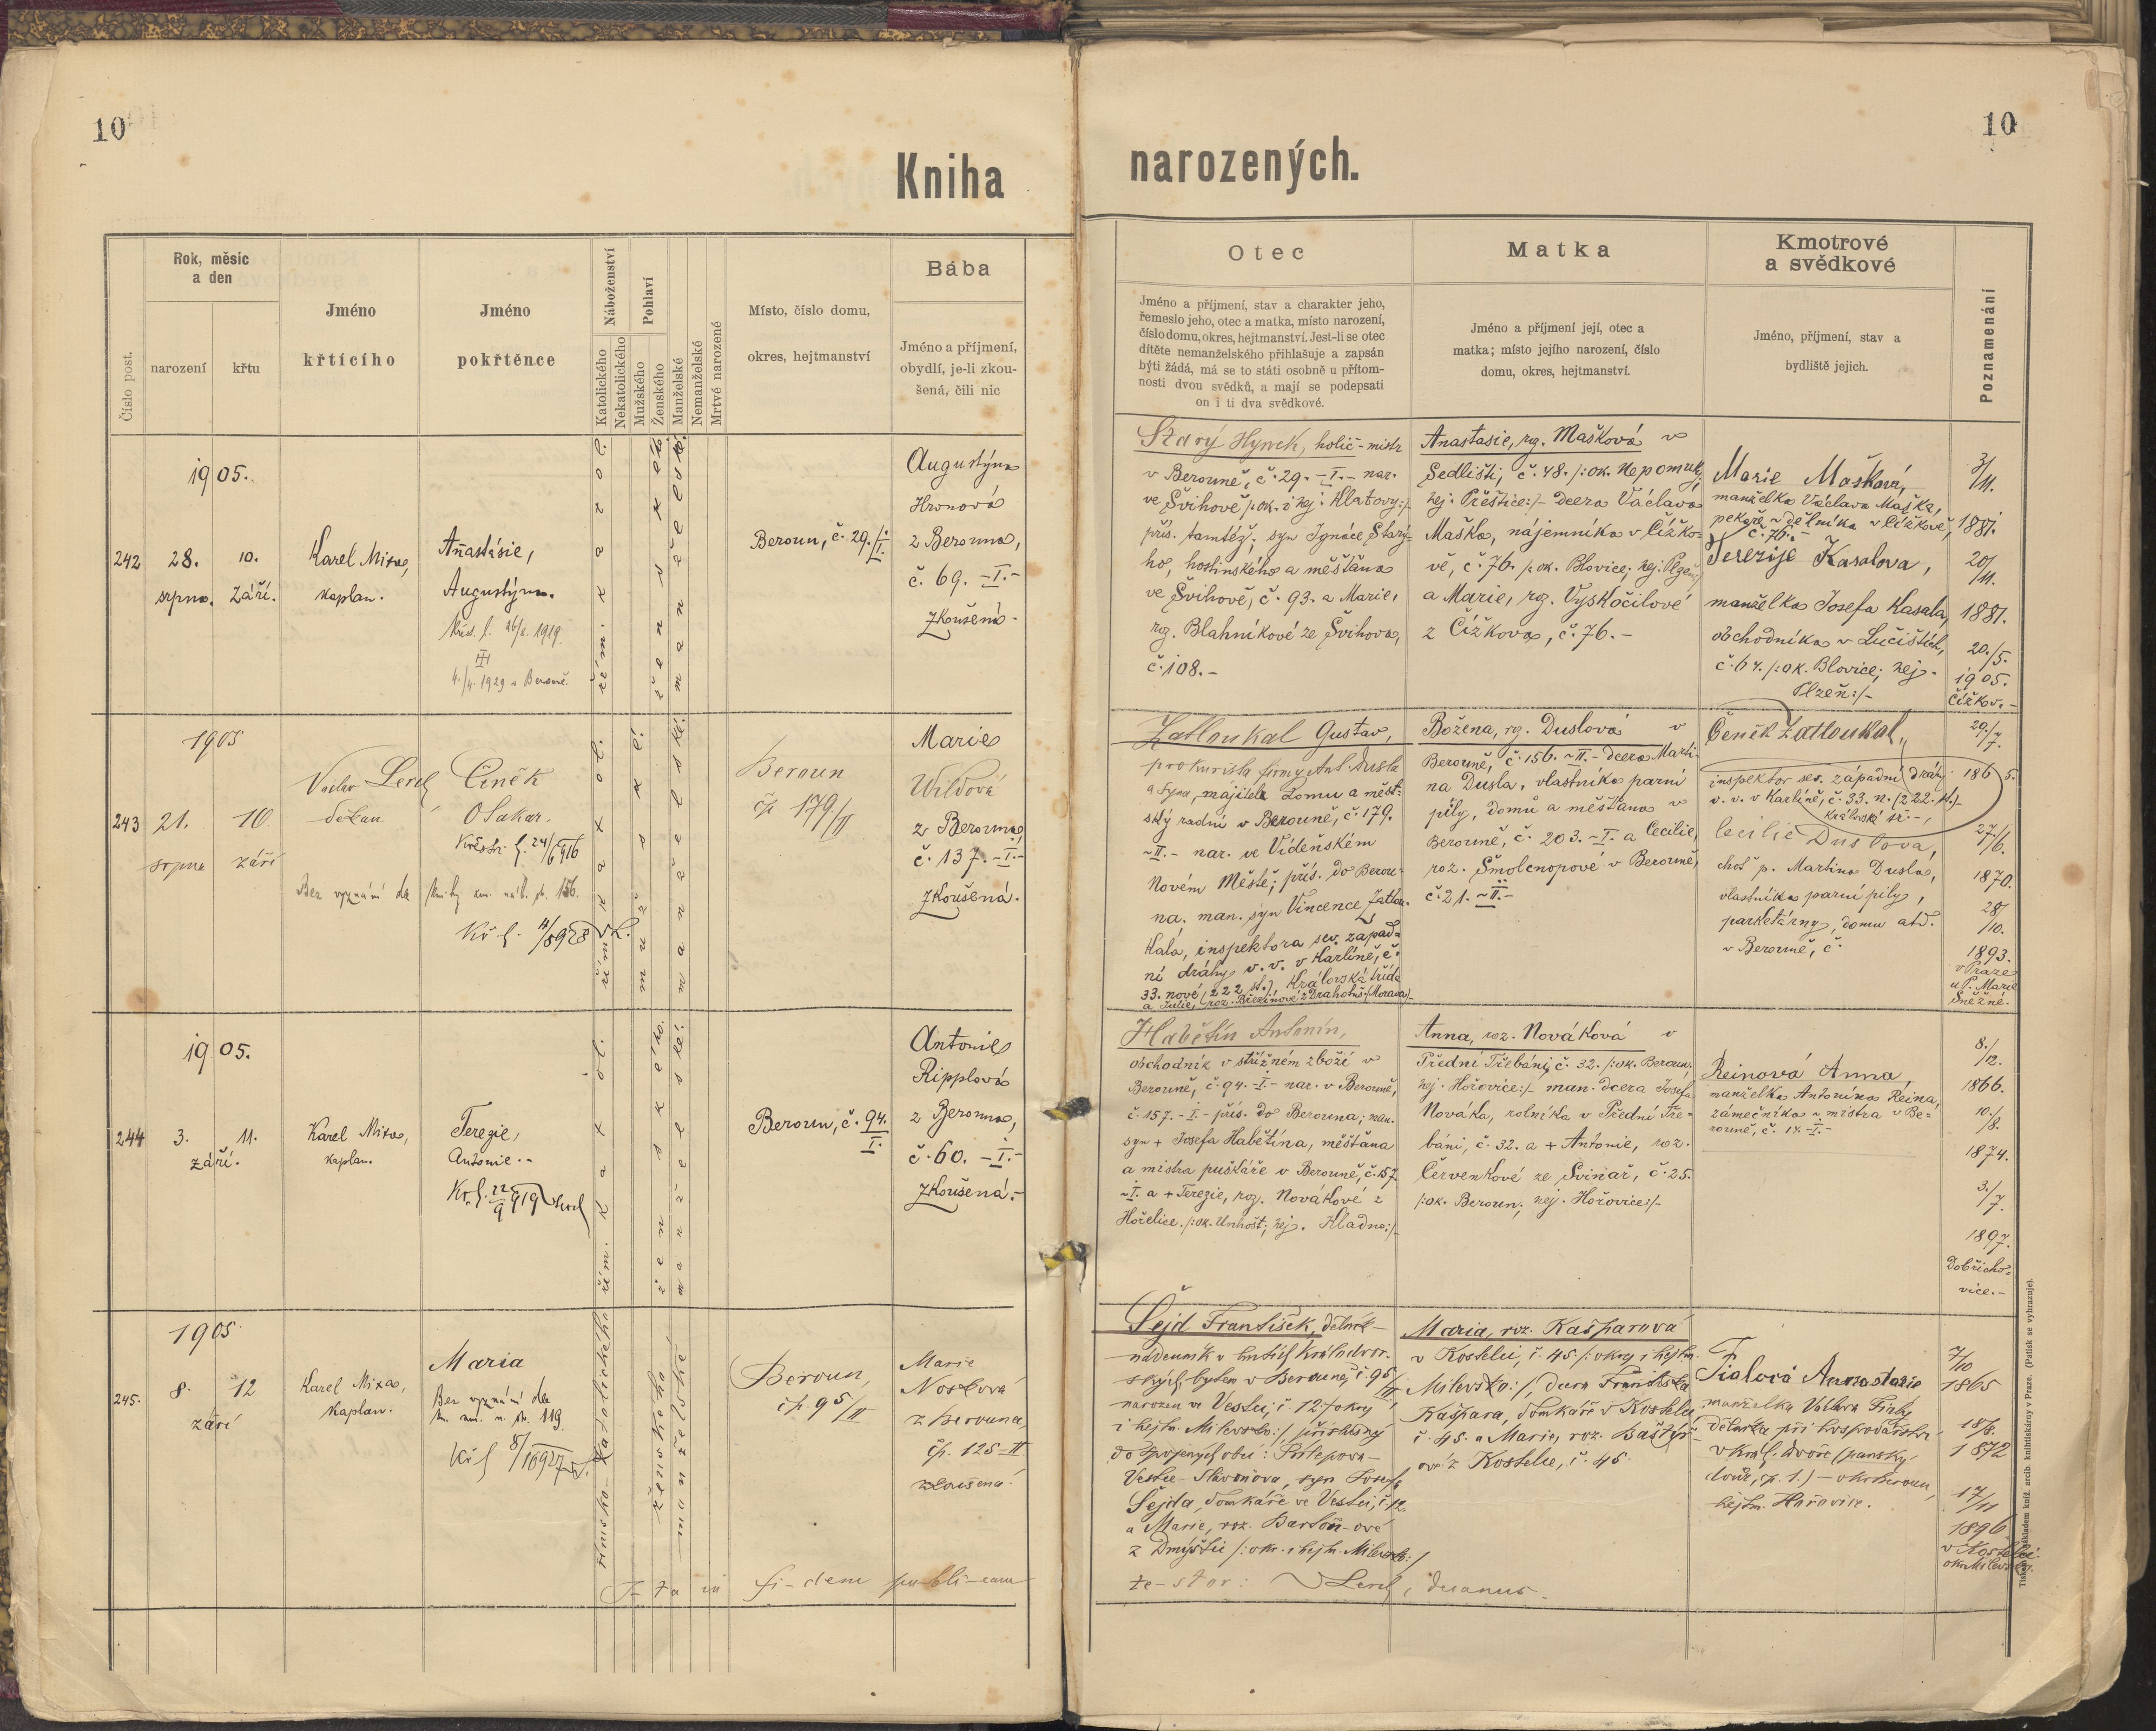 10
10
Kniha
narozených.
Číslo post.
Rok, měsíc
a den
narození
křtu
Jméno
křtícího
Jméno
pokřtěnce
Náboženství
Katolického
Nekatolického
Pohlaví
Mužského
Ženského
Manželské
Nemanželské
Mrtvé narozené
Místo, číslo domu,
okres, hejtmanství
Bába
Jméno a příjmení,
obydlí, je-li zkou-
šená, čili nic
Otec
Jméno a příjmení, stav a charakter jeho,
řemeslo jeho, otec a matka, místo narození,
číslo domu, okres, hejtmanství. Jest-li se otec
dítěte nemanželského přihlašuje a zapsán
býti žádá, má se to státi osobně u přítom-
nosti dvou svědků, a mají se podepsati
on i ti dva svědkové.
Matka
Jméno a příjmení její, otec a
matka; místo jejího narození, číslo
domu, okres, hejtmanství.
Kmotrové
a svědkové
Jméno, příjmení, stav a
bydliště jejich.
Poznamenání
1905.
242
28.
srpna.
10.
září.
Karel Mixa,
kaplan.
Anastásie,
Augustýna.
Křest. l. 26/2. 1919.
4./4. 1929 v Berouně.
řím. katol.
ženské
manželské.
Beroun, č. 29./I.
Augustýna
Hronová
z Berouna,
č. 69. -I.-
zkoušená.
Starý Hynek, holič-mistr
v Berouně, č. 29. -I.- nar.
ve Švihově /:ok. i hej. Klatovy:/
přís. tamtéž; syn Ignáce Staré-
ho, hostinského a měšťana
ve Švihově, č. 93. a Marie,
roz. Blahníkové ze Švihova,
č. 108.-
Anastasie, roz. Mašková v
Sedlišti, č. 48. /:ok. Nepomuky,
hej. Přeštice:/- dcera Václava
Maška, nájemníka v Čížko-
vě, č. 76. /:ok. Blovice; hej. Plzeň:/
a Marie, roz. Vyskočilové
z Čížkova, č. 76.-
Marie Mašková,
manželka Václava Maška,
pekaře-dělníka v Čížkově,
č. 76.-
Terezije Kasalova,
manželka Josefa Kasala,
obchodníka v Lučištích,
č. 64. /:ok. Blovice; hej.
Plzeň:/-
3/11.
1881.
20/11.
1881.
20./5.
1905.
Čížkov.-
1905
243
21.
srpna
10
září
Václav Lerch
děkan
Čeněk
Otakar.
Křestní l. 24/6 1916
Bez vyznání dle knihy
Kř l. 11/8 928
řím. katol.
mužské.
manželské.
Beroun
čp 179/II
Marie
Wildová
z Berouna,
č. 137.-I.-
zkoušená.
Zatloukal Gustav,
prokurista firmy Ant. Dusla
a syna, majitele domu a měst-
ský radní v Berouně, č. 179.
-II.- nar. ve Vídeňském
Novém Městě; přís. do Berou-
na. man. syn Vincence Zatlou-
kala, inspektora sev. západ-
ní dráhy v. v. v Karlíně, č.
33. nové (222 st.), Královská třída
a Julie, roz. Bielinové z Drahotuš (Morava)-
Božena, roz. Duslová v
Berouně, č. 156.-II.- dcera Marti-
na Dusla, vlastníka parní
pily, domů a měšťana v
Berouně, č. 203.-I. a Cecilie,
roz. Šmolcnopové v Berouně,
č. 21.-II.-
Čeněk Zatloukal,
inspektor sev. západní dráhy
v. v. v Karlíně, č. 33. n. (222. st.)-
Královská tř.-,
Cecilie Duslova,
choť p. Martina Dusla,
vlastníka parní pily,
parketárny, domu atd.
v Berouně, č.
29./7.
1865.
27./6.
1870.
28/10.
1893.
v Praze
u P. Marie
Sněžné.
1905.
244
3.
září.
11.
Karel Mixa,
kaplan.
Terezie,
Antonie.-
Kř. l. 22/9 919 Lerch
řím. katol.
ženské.
manželské.
Beroun, č. 94./I.
Antonie
Ripplová
z Berouna,
č. 60. -I.-
zkoušená.-
Habětín Antonín,
obchodník v střižném zboží v
Berouně, č. 94.-I.- nar. v Berouně,
č. 157.-I.- přís. do Berouna; man.
syn + Josefa Habětína, měšťana
a mistra puškaře v Berouně, č. 157.
-I. a + Terezie, roz. Novákové z
Hořelice. /:ok. Unhošť; hej. Kladno:/-
Anna, roz. Nováková v
Přední Třebáni, č. 32. /:ok. Beroun,
hej. Hořovice:/- man. dcera Josefa
Nováka, rolníka v Přední Tře-
báni, č. 32. a + Antonie, roz.
Červenkové ze Svinař, č. 25.
/:ok. Beroun; hej. Hořovice:/-
Reinová Anna,
manželka Antonína Reina,
zámečníka-mistra v Be-
rouně, č. 14.-I.-
8./12.
1866.
10./8.
1874.
3./7.
1897.
Dobřicho-
vice.-
1905
245.
8.
září
12
Karel Mixa,
kaplan.
Maria
Bez vyznání dle
kn. nar. n. str. 119
Kř l 8/10 927
římsko-katolického
ženského
manželské
Beroun,
čp. 95/II
Marie
Nosková
z Berouna
čp. 125-II
zkoušená.
Šejd František, dělník-
nádenník v hutích Králodvor-
ských, bytem v Berouně, č. 95/II
narozen ve Vestci, č. 12. /:okry
i hejtm. Milevsko:/ příslušný
do spojených obcí: Přílepova-
Vestce-Slavonova, syn Josefa
Šejda, domkáře ve Vestci, č. 12.
a Marie, roz. Bartoň-ové
z Dmýštic /:okr. i hejtm. Milevsko:/
Maria, roz. Kašparová
v Kostelci, č. 45 /:okry i hejtm.
Milevsko:/, dcera Františka
Kašpara, domkáře v Kostelci
č. 45. a Marie, roz. Baštýř-
ové z Kostelce, č. 45.
Fialová Anastazie
manželka Václava Fialy
dělníka při hospodářství
v Král. dvoře (panský
dvůr, čp. 1.) - okr. Beroun,
hejtm. Hořovice.
7/10
1865
18/8.
1872
17/11
1896
v Kostelci
okr. Milevsko
I-ta in fi-dem publi-cam
te-stor: V Lerch, decanus.
Tiskem a nákladem kníž. arcib. knihtiskárny v Praze. (Patisk se vyhrazuje).